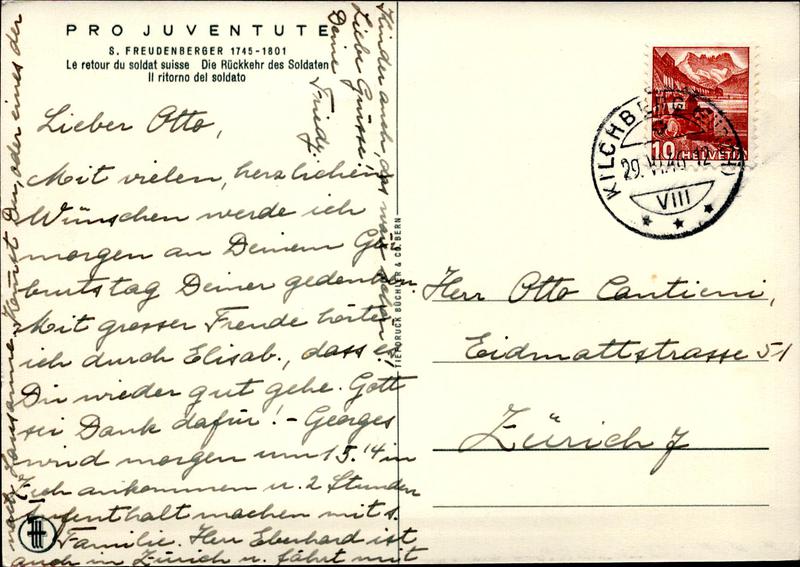 PRO JUVENTUTE
S. FREUDENBERGER 1745-1801
Le retour du soldat suisse Die Rückkehr des Soldaten
Il ritorno del soldato
Lieber Otto,
Mit vielen, herzlichen
Wünschen werde ich
morgen an Deinem Ge
burtstag Deiner gedenken.
Mit grosser Freude hörte
ich durch Elisab., dass es
Dir wieder gut gehe. Gott
sei Dank dafür! - Georges
wird morgen um 15.14 in
Zch ankommen u. 2 Stunden
Aufenthalt machen mit s.
Familie. Herr Eberhard ist
auch in Zürich u. fährt mit
nach Lausanne. Kannst Du, oder eines der
Kinder auch, das mal
Liebe Grüsse!
Deine
Friedy.
TIEFDRUCK BÜCHLER & CO. BERN
10 HELVETIA
KILCHBERG (ZÜRICH)
29.VI.40-12
VIII
Herr Otto Cantieni,
Eidmattstrasse 51
Zürich 7